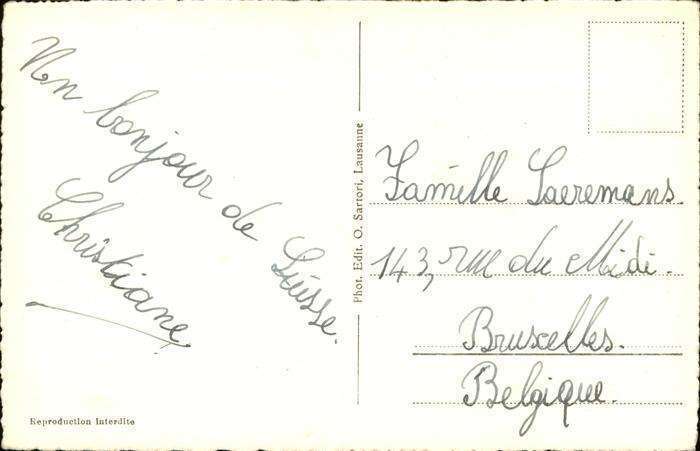 Un bonjour de Suisse.
Christiane
Reproduction Interdite
Phot. Edit. O. Sartori, Lausanne
Famille Saeremans.
143, rue du Midi.
Bruxelles.
Belgique.